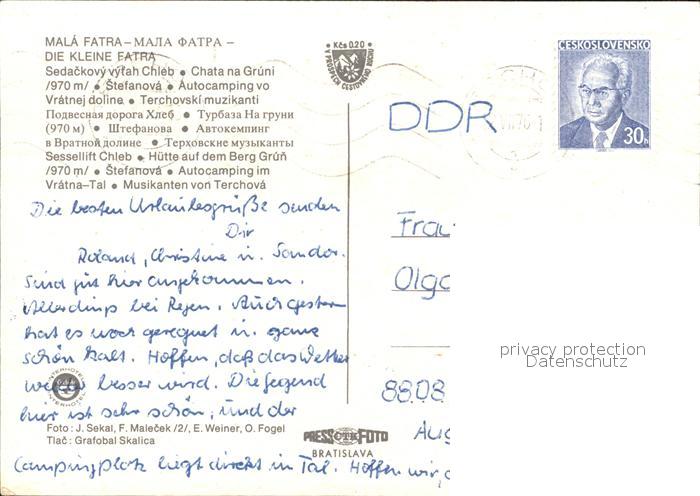 MALÁ FATRA – МАЛА ФАТРА –
DIE KLEINE FATRA
Sedačkový výťah Chleb • Chata na Grúni
/970 m/ • Štefanová • Autocamping vo
Vrátnej doline • Terchovskí muzikanti
Подвесная дорога Хлеб • Турбаза На груни
(970 м) • Штефанова • Автокемпинг
в Вратной долине • Терховские музыканты
Sessellift Chleb • Hütte auf dem Berg Grúň
/970 m/ • Štefanová • Autocamping im
Vrátna–Tal • Musikanten von Terchová
Die besten Urlaubsgrüße senden
Dir
Roland, Christine u. Sandor.
Sind gut hier angekommen.
Allerdings bei Regen. Auch gestern
hat es noch geregnet u. ganz
schön kalt. Hoffen, daß das Wetter
besser wird. Die Gegend
hier ist sehr schön, und der
Campingplatz liegt direkt im Tal. Hoffen wir, d
INTERHOTEL
INTERHOTEL
Foto: J. Sekal, F. Maleček /2/, E. Weiner, O. Fogel
Tlač: Grafobal Skalica
Kčs 0.20
V PROSPECH CESTOVNÉHO RUCHU
PRESSFOTO
BRATISLAVA
ČESKOSLOVENSKO
30h
DDR
Frau
Olga
privacy protection
Datenschutz
8808
Aug